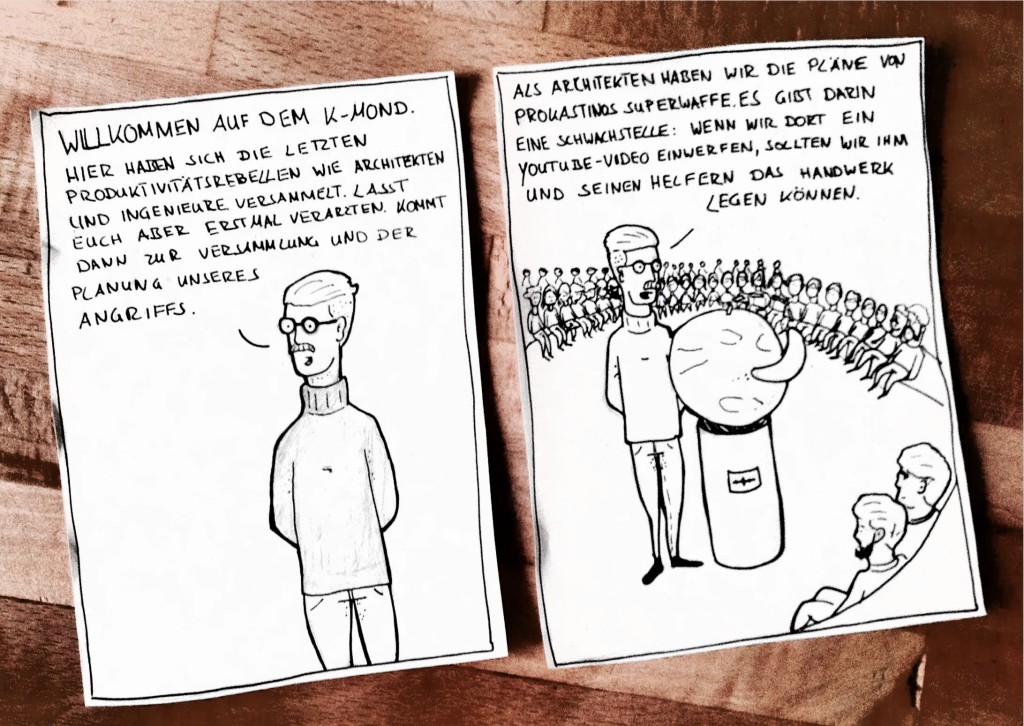 WILLKOMMEN AUF DEM K-MOND.
HIER HABEN SICH DIE LETZTEN
PRODUKTIVITÄTSREBELLEN WIE ARCHITEKTEN
UND INGENIEURE VERSAMMELT. LASST
EUCH ABER ERSTMAL VERARZTEN. KOMMT
DANN ZUR VERSAMMLUNG UND DER
PLANUNG UNSERES
ANGRIFFS.
ALS ARCHITEKTEN HABEN WIR DIE PLÄNE VON
PROKASTINOS SUPERWAFFE. ES GIBT DARIN
EINE SCHWACHSTELLE: WENN WIR DORT EIN
YOUTUBE-VIDEO EINWERFEN, SOLLTEN WIR IHM
UND SEINEN HELFERN DAS HANDWERK
LEGEN KÖNNEN.